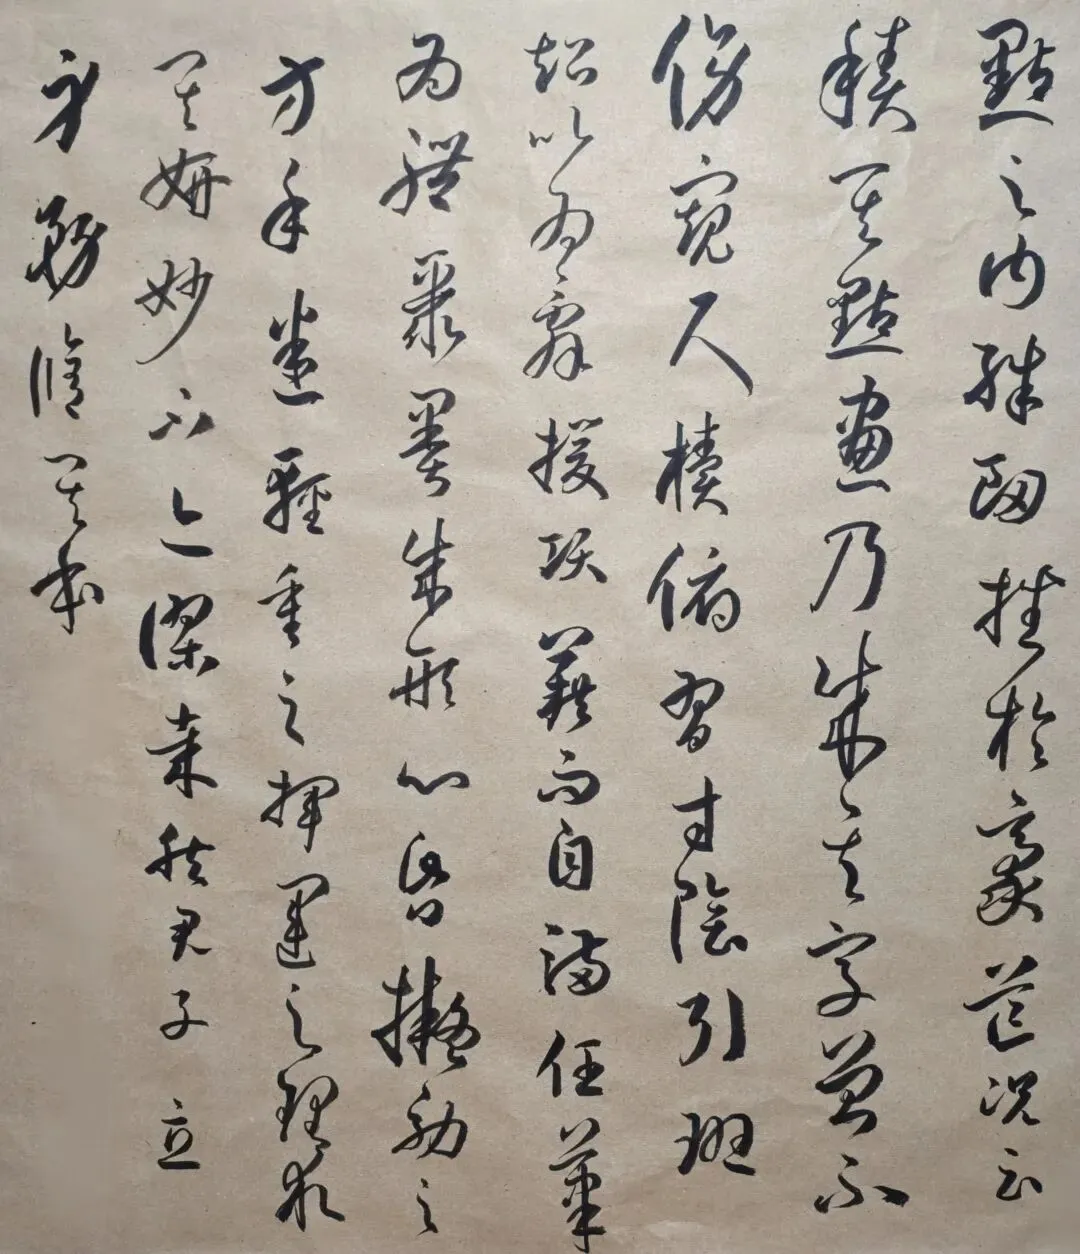 點之內殊衄挫於豪芒況云
積其點畫乃成其字曾不
傍窺尺牘俯習寸陰引班
超以為辭援項籍而自滿任筆
為體聚墨成形心昏擬効之
方手迷輕重之揮運之理求
其妍妙不亦謬哉然君子立
身務脩其本